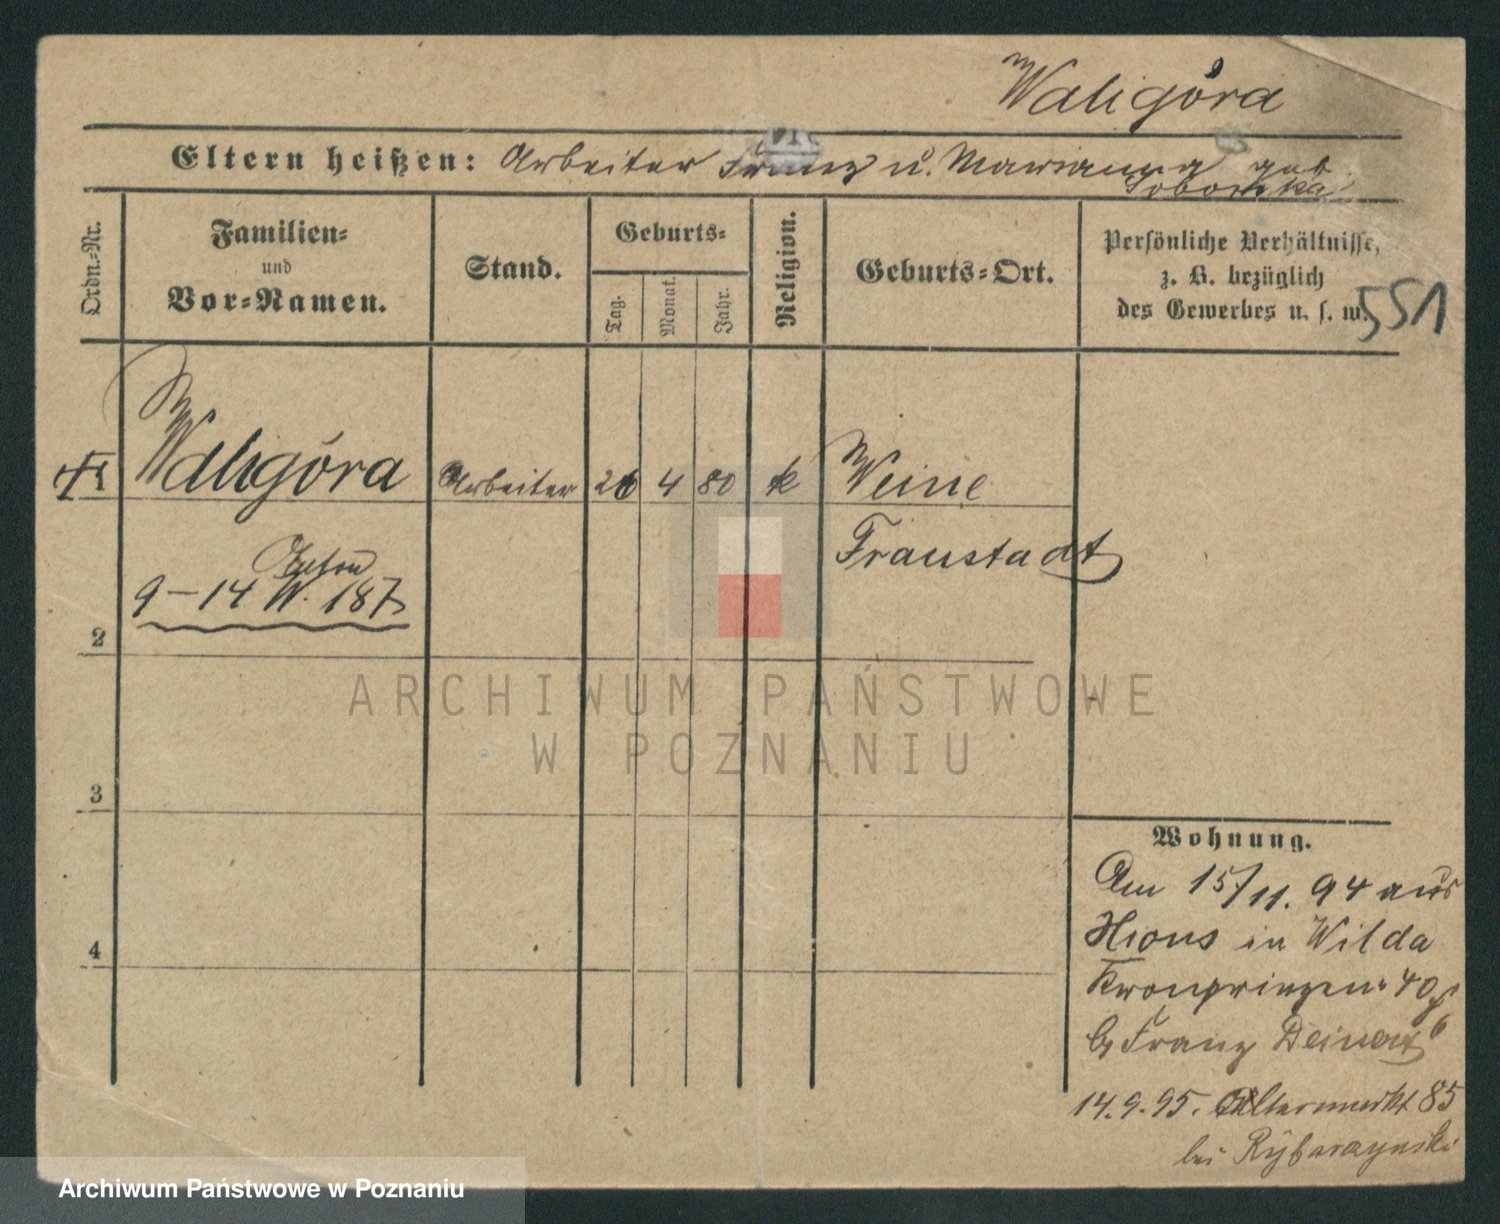 Waligóra
Eltern heißen: Arbeiter Franz u. Marianna geb.
Ordn.-Nr.
Familien-
und
Vor-Namen.
Stand.
Geburts-
Tag.
Monat.
Jahr.
Religion.
Geburts-Ort.
Persönliche Verhältnisse,
z. B. bezüglich
des Gewerbes u. s. w.
551
Waligóra Arbeiter 26 4 80 k Weine
Fraustadt
9–14 W. 187
2
3
4
Wohnung.
Am 15/11. 94 aus
Xions in Wilda
Kronprinzen- 40
b/ Franz
14.9.95. Altermarkt 85
bei Rybarczynski
ARCHIWUM PAŃSTWOWE
W POZNANIU
Archiwum Państwowe w Poznaniu